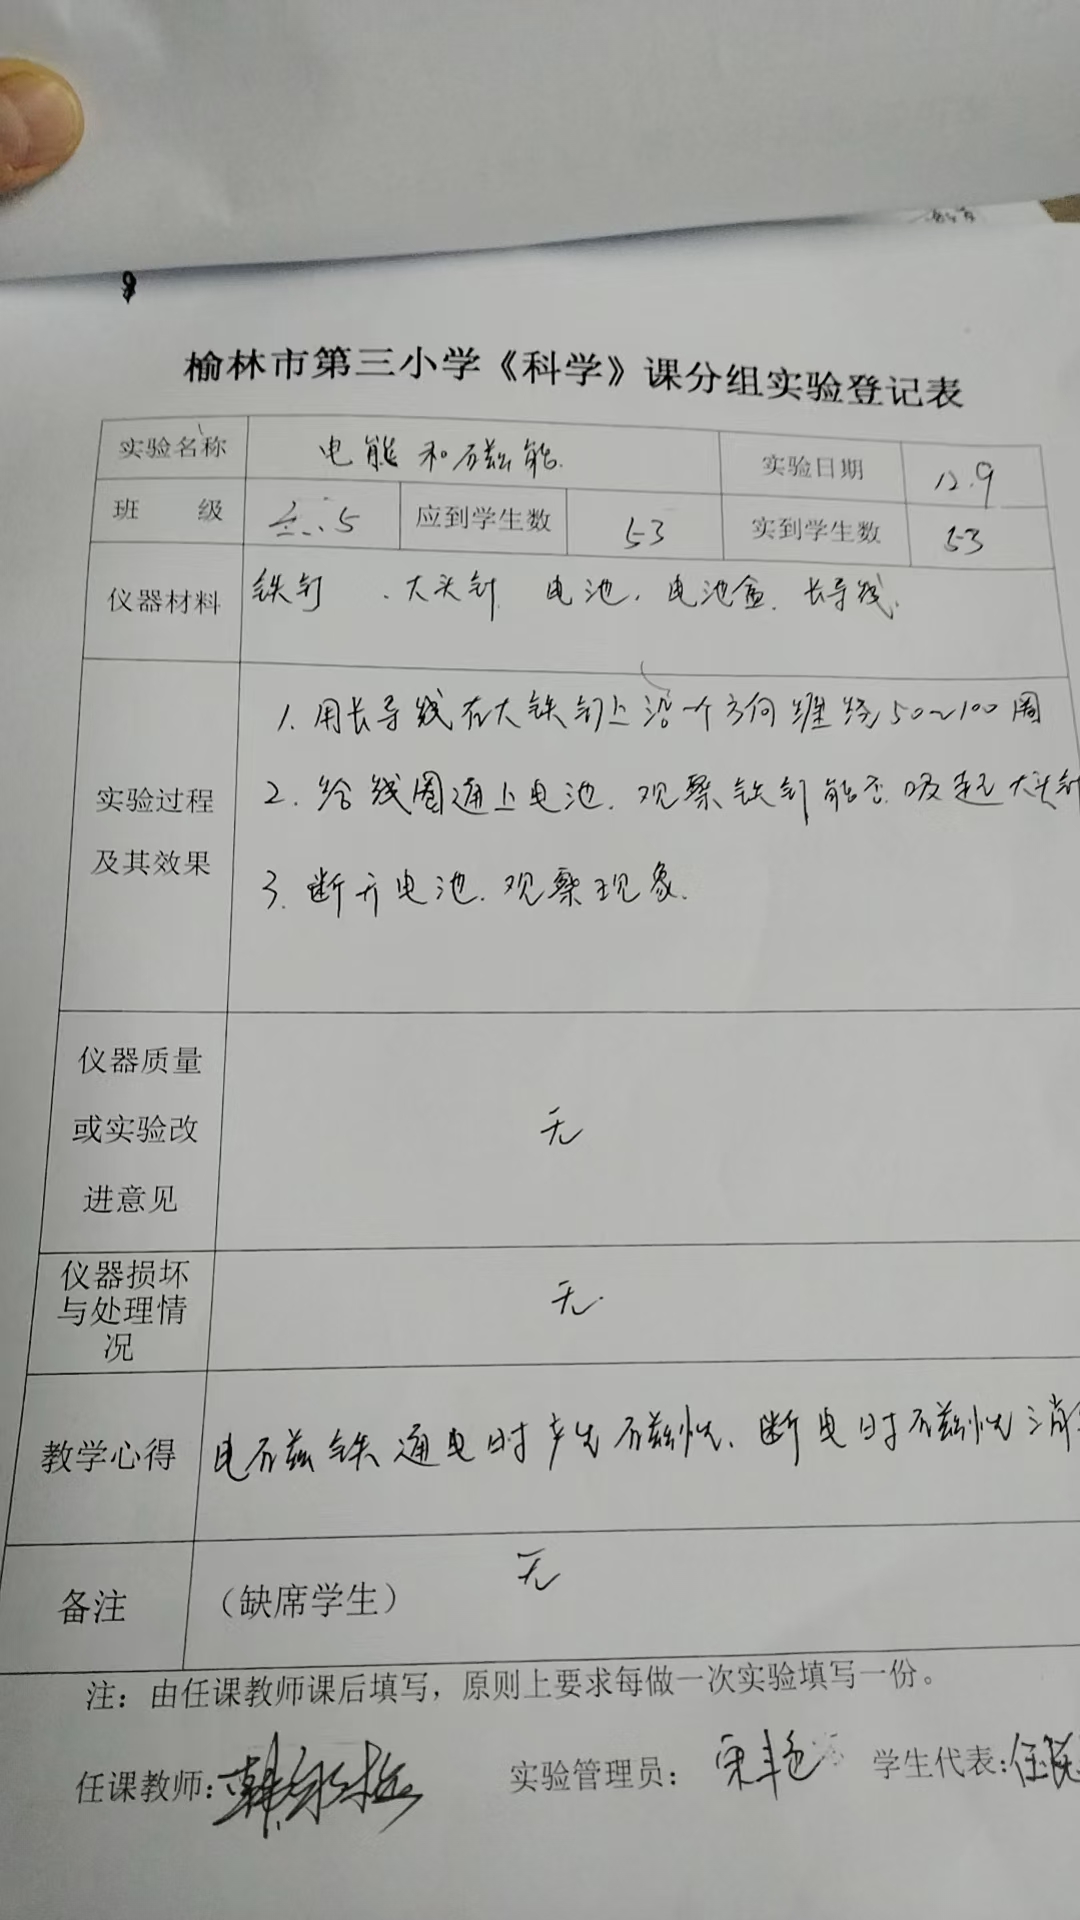 榆林市第三小学《科学》课分组实验登记表
实验名称 电能和磁能. 实验日期 12.9
班 级 应到学生数 53 实到学生数 53
仪器材料 铁钉、大头针 电池、电池盒、长导线、
实验过程及其效果
1. 用长导线在大铁钉上沿一个方向缠绕50~100周
2. 给线圈通上电池.观察铁钉能否吸起大头针
3. 断开电池.观察现象.
仪器质量
或实验改 无
进意见
仪器损坏
与处理情 无.
况
教学心得 电磁铁通电时产生磁性、断电时磁性消
备注 (缺席学生) 无
注：由任课教师课后填写，原则上要求每做一次实验填写一份。
任课教师: 实验管理员: 宋艳 学生代表:任